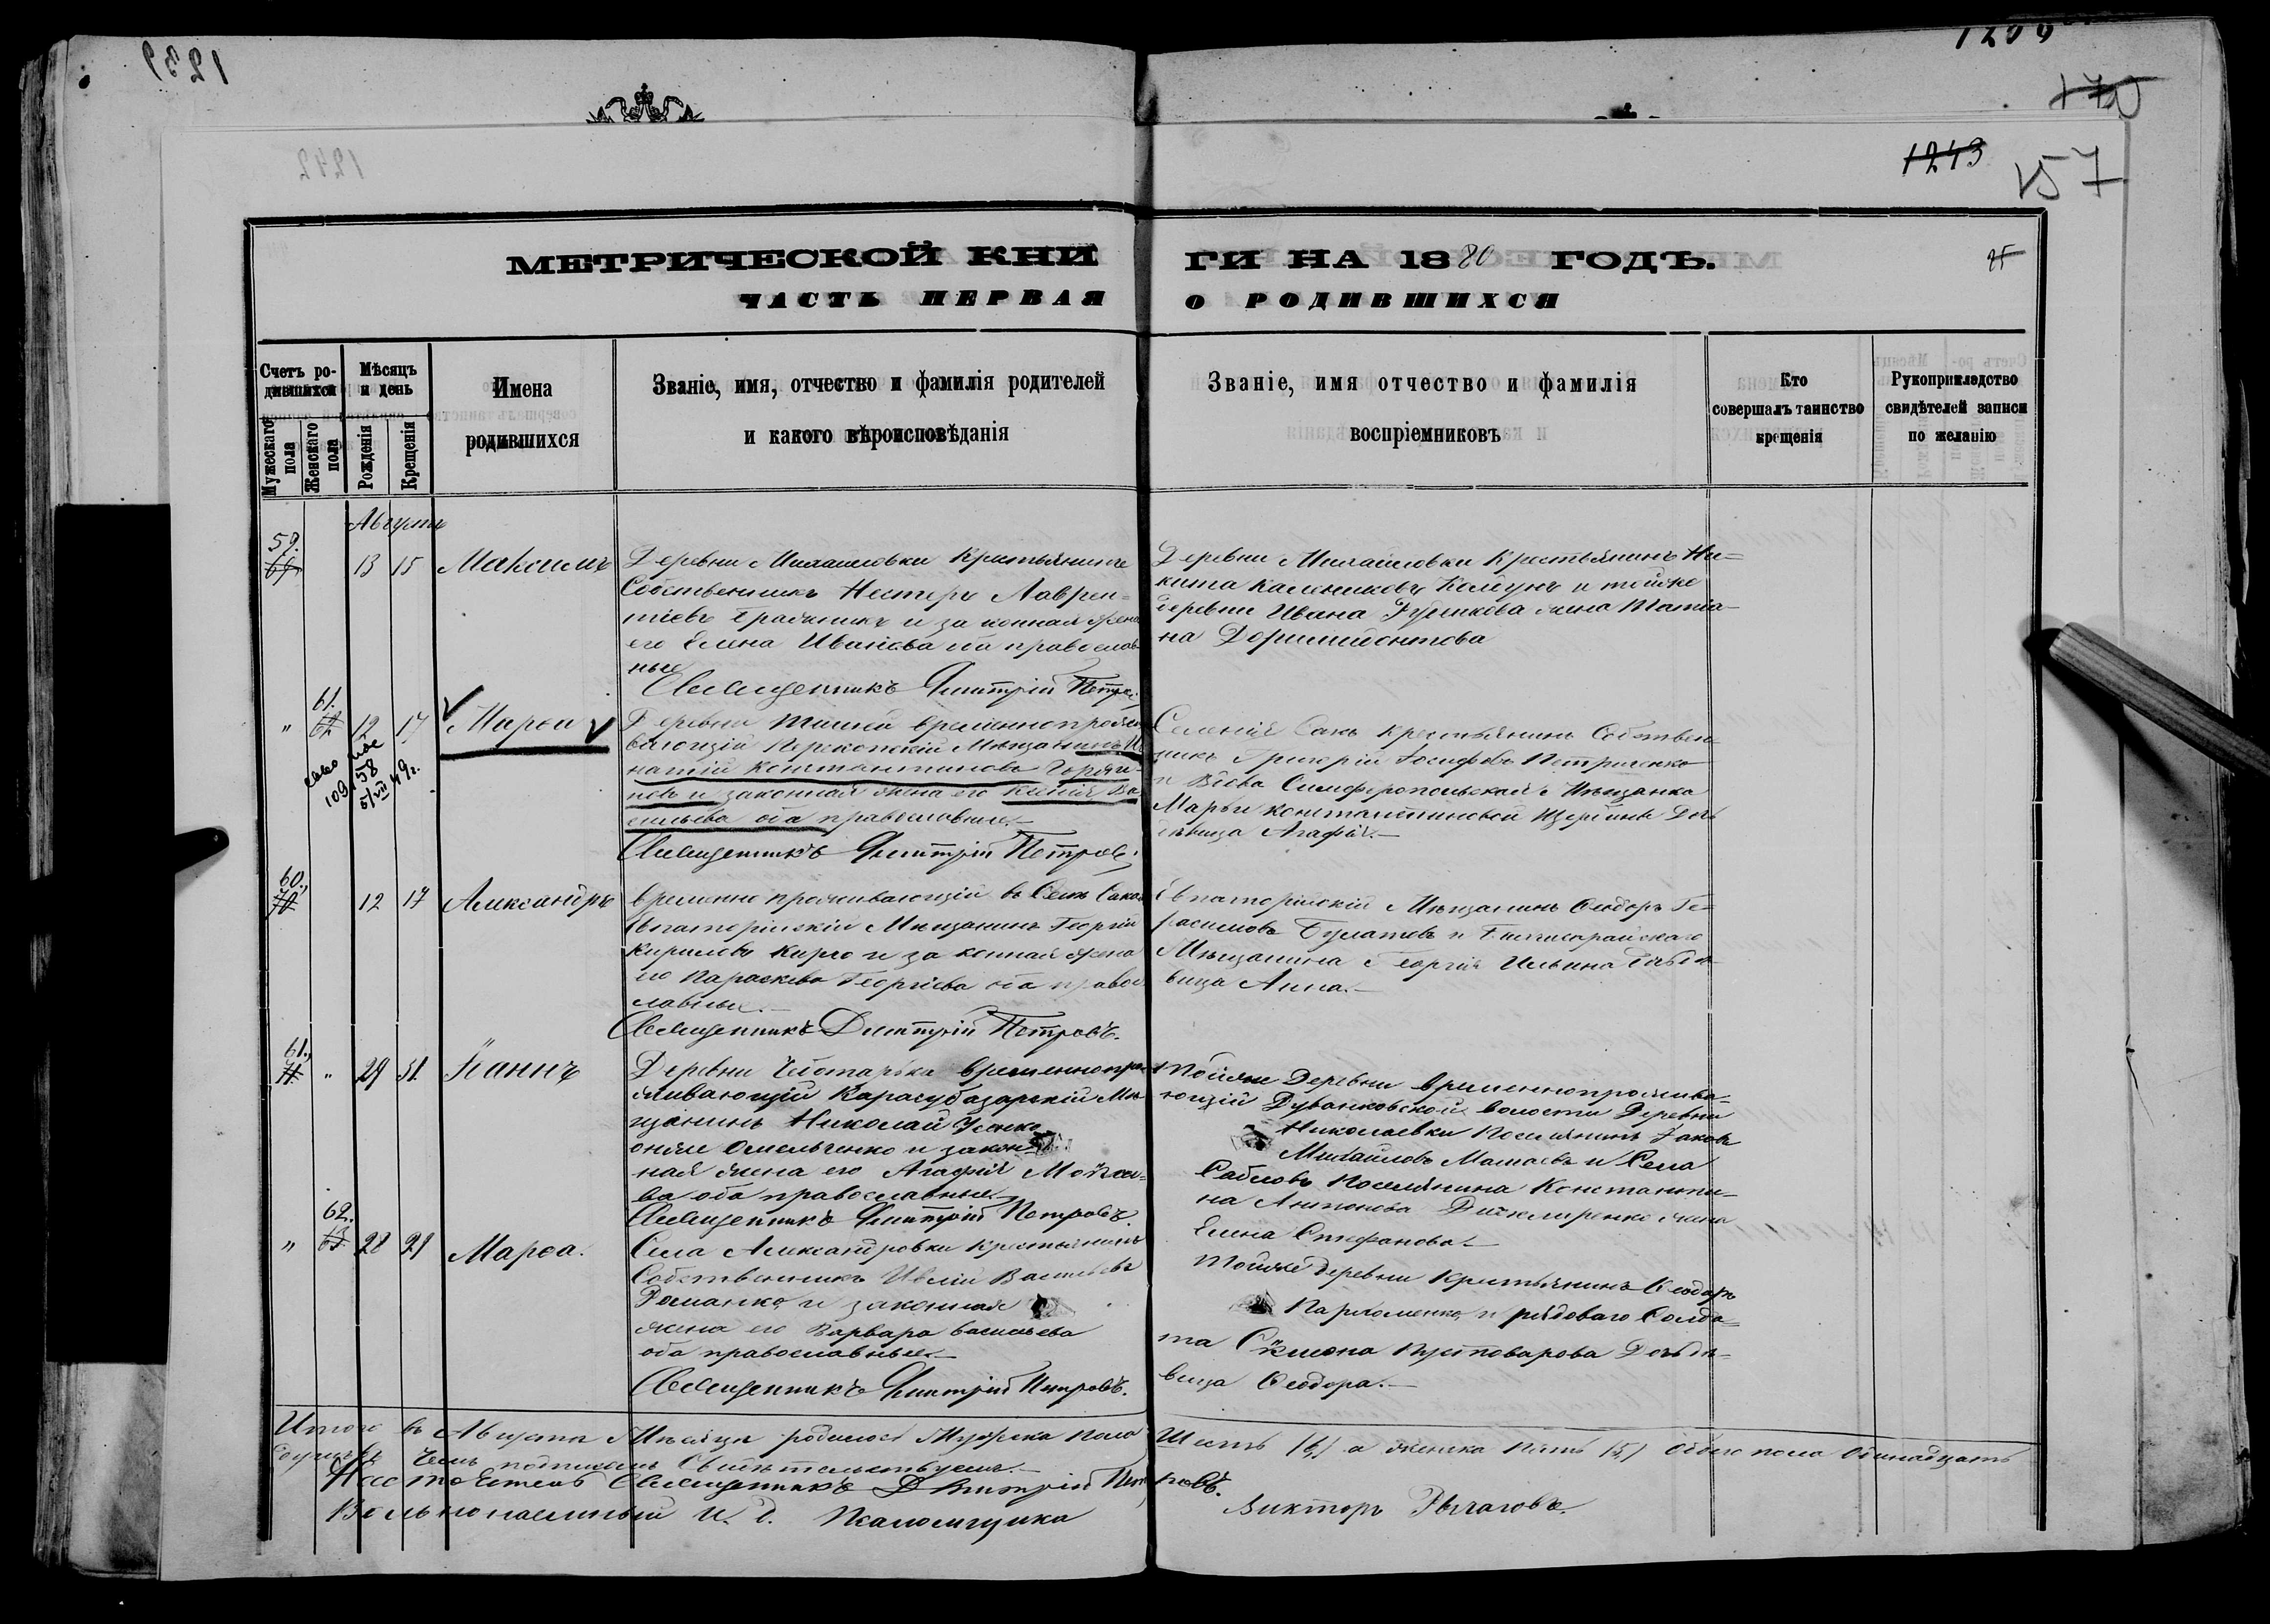 1239
1242
1243
157
МЕТРИЧЕСКОЙ КНИ ГИ НА 1880 ГОДЪ.
ЧАСТЬ ПЕРВАЯ О РОДИВШИХСЯ
Счетъ ро-
дившихся
Мужескаго пола
Женскаго пола
Мѣсяцъ
и день
Рожденія
Крещенія
Имена
родившихся
Званіе, имя, отчество и фамилія родителей
и какого вѣроисповѣданія
Званіе, имя отчество и фамилія
воспріемниковъ
Кто
совершалъ таинство
крещенія
Рукоприкладство
свидѣтелей записи
по желанію
Августъ
59.
13 15 Максимъ
Деревни Михайловки Крестьянинъ
Собственникъ Нестеръ Лаврен-
тіевъ и законная жена
его Елена Иванова оба православ-
ные
Священникъ Димитрій Петров
Деревни Михайловки Крестьянинъ Ни-
кита и тойже
деревни Ивана жена Татіа-
на
61.
" 12 17 Марѳа
109158
5/VII 49 г.
Деревни временнопрожи
вающій Перекопскій Мѣщанинъ Иг
натій Константиновъ
новъ и законная жена его Ва
сильева оба православные.
Священникъ Димитрій Петровъ.
Селенія Саки Крестьянинъ Собствен
никъ Григорій Іосифовъ Петриченко
и Симферопольская Мѣщанка
Марьи Константиновой Дочь
дѣвица Агафія.
60.
12 17 Александръ
Временно проживающій въ Селѣ Сакахъ
Евпаторійскій Мѣщанинъ Георгій
Кириловъ и законная жена
его Параскева Георгіева оба право
славные.
Священникъ Димитрій Петровъ.
Евпаторійскій Мѣщанинъ Ѳеодоръ Ге-
расимовъ Булатовъ и Бахчисарайскаго
Мѣщанина Георгія Ильина дочь дѣ
вица Анна.
61.
" 29 31. Іоаннъ
Деревни Чеботарка временнопро
живающій Карасубазарскій Мѣ-
щанинъ Николай
Омельченко и закон-
ная жена его Агафія Мойсее-
ва оба православные
Священникъ Димитрій Петровъ.
Тойже Деревни временнопрожива-
ющій Дуванковской волости Деревни
Николаевки Поселянинъ Іаковъ
Михайловъ и Села
Сабловъ Поселянина Константи-
на Антонова жена
Елена Стефанова
62.
" 28 31 Марѳа.
Села Александровки Крестьянинъ
Собственникъ Василіевъ
Романко и законная
жена его Варвара Васильева
оба православные
Священникъ Димитрій Петровъ.
Тойже деревни Крестьянинъ Ѳеодоръ
Пархоменко и рядоваго Солда-
та Симеона Пустоварова Дочь дѣ-
вица Ѳеодора.
Итого въ Августѣ Мѣсяцѣ родилось Мужска пола Шесть (6) а женска Пять (5) Обоего пола Одинадцать
чемъ подписомъ Свидѣтельствуемъ.
Настоятель Священникъ Димитрій Петровъ.
Вольнонаемный И. д. Псаломщика Викторъ Рычаговъ.